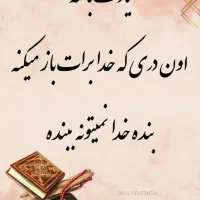 اون دری که خدا برات باز میکنه
بنده خدا نمیتونه ببنده